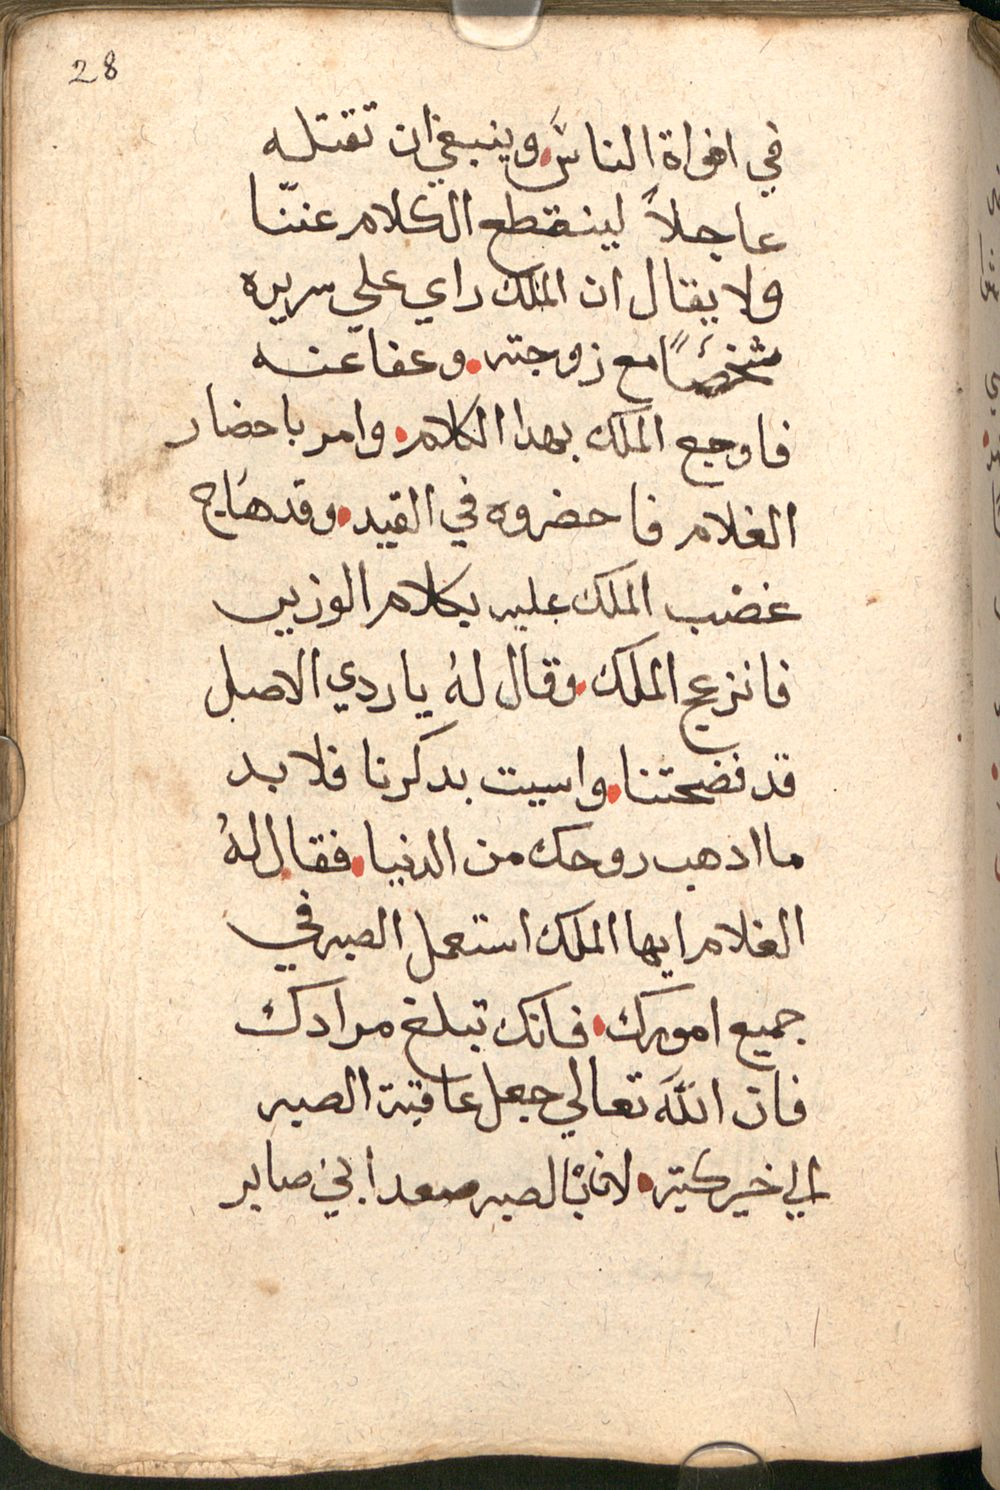 28
في افواة الناس وينبغي ان تقتله
عاجلاً لينقطع الكلام عننّا
ولا يقال ان الملك راي علي سريره
شخصًا مع زوجته وعفا عنه
فاوجع الملك بهدا الكلام وامر باحضار
الغلام فاحضروه في القيد وقد هاج
غضب الملك عليه بكلام الوزير
فانزعج الملك وقال لهُ يا ردي الاصل
قد فضحتنا واسيت بدكرنا فلا بد
ما ادهب روحك من الدنيا فقال لهُ
الغلام ايها الملك استعمل الصبر في
جميع امورك فانك تبلغ مرادك
فان اللّه تعالي جعل عاقبة الصبر
الي خير كتير لان بالصبر صعد ابي صابر